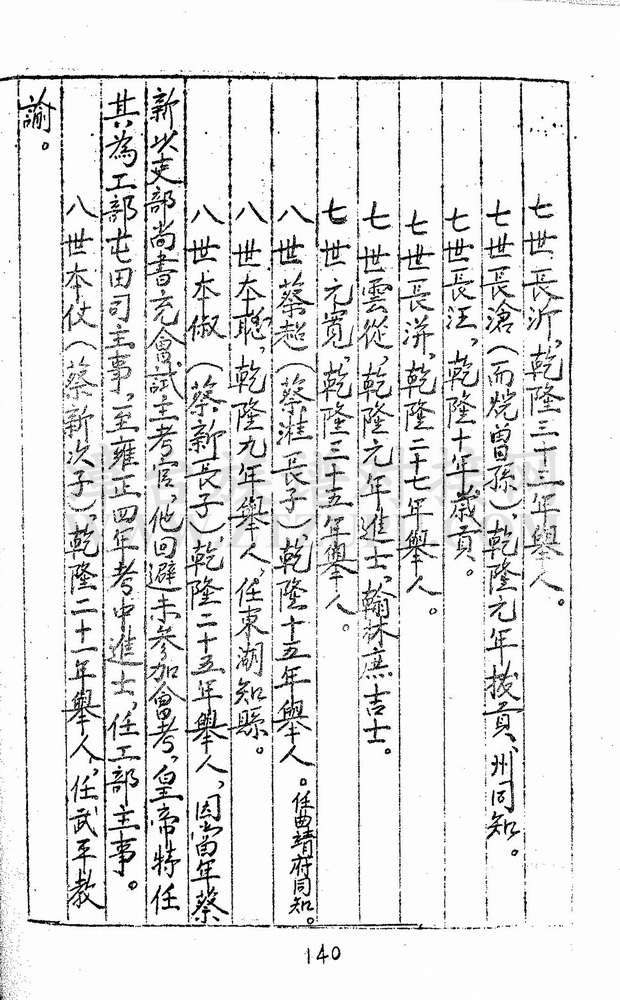 七世長沂，乾隆三十三年舉人。
七世長滄（而烷曽孫），乾隆元年拔貢，州同知。
七世長汪，乾隆十年歲貢。
七世長洴，乾隆二十七年舉人。
七世雲從，乾隆元年進士，翰林庶吉士。
七世元寬，乾隆三十五年舉人。
八世蔡超（蔡淮長子），乾隆十五年舉人。任曲靖府同知。
八世本聰，乾隆九年舉人，任東湖知縣。
八世本俶（蔡新長子），乾隆二十五年舉人，因當年蔡
新以吏部尚書充會試主考官，他回避未參加會考，皇帝特任
其為工部屯田司主事，至雍正四年考中進士，任工部主事。
八世本仗（蔡新次子），乾隆二十一年舉人，任武平教
諭。
140